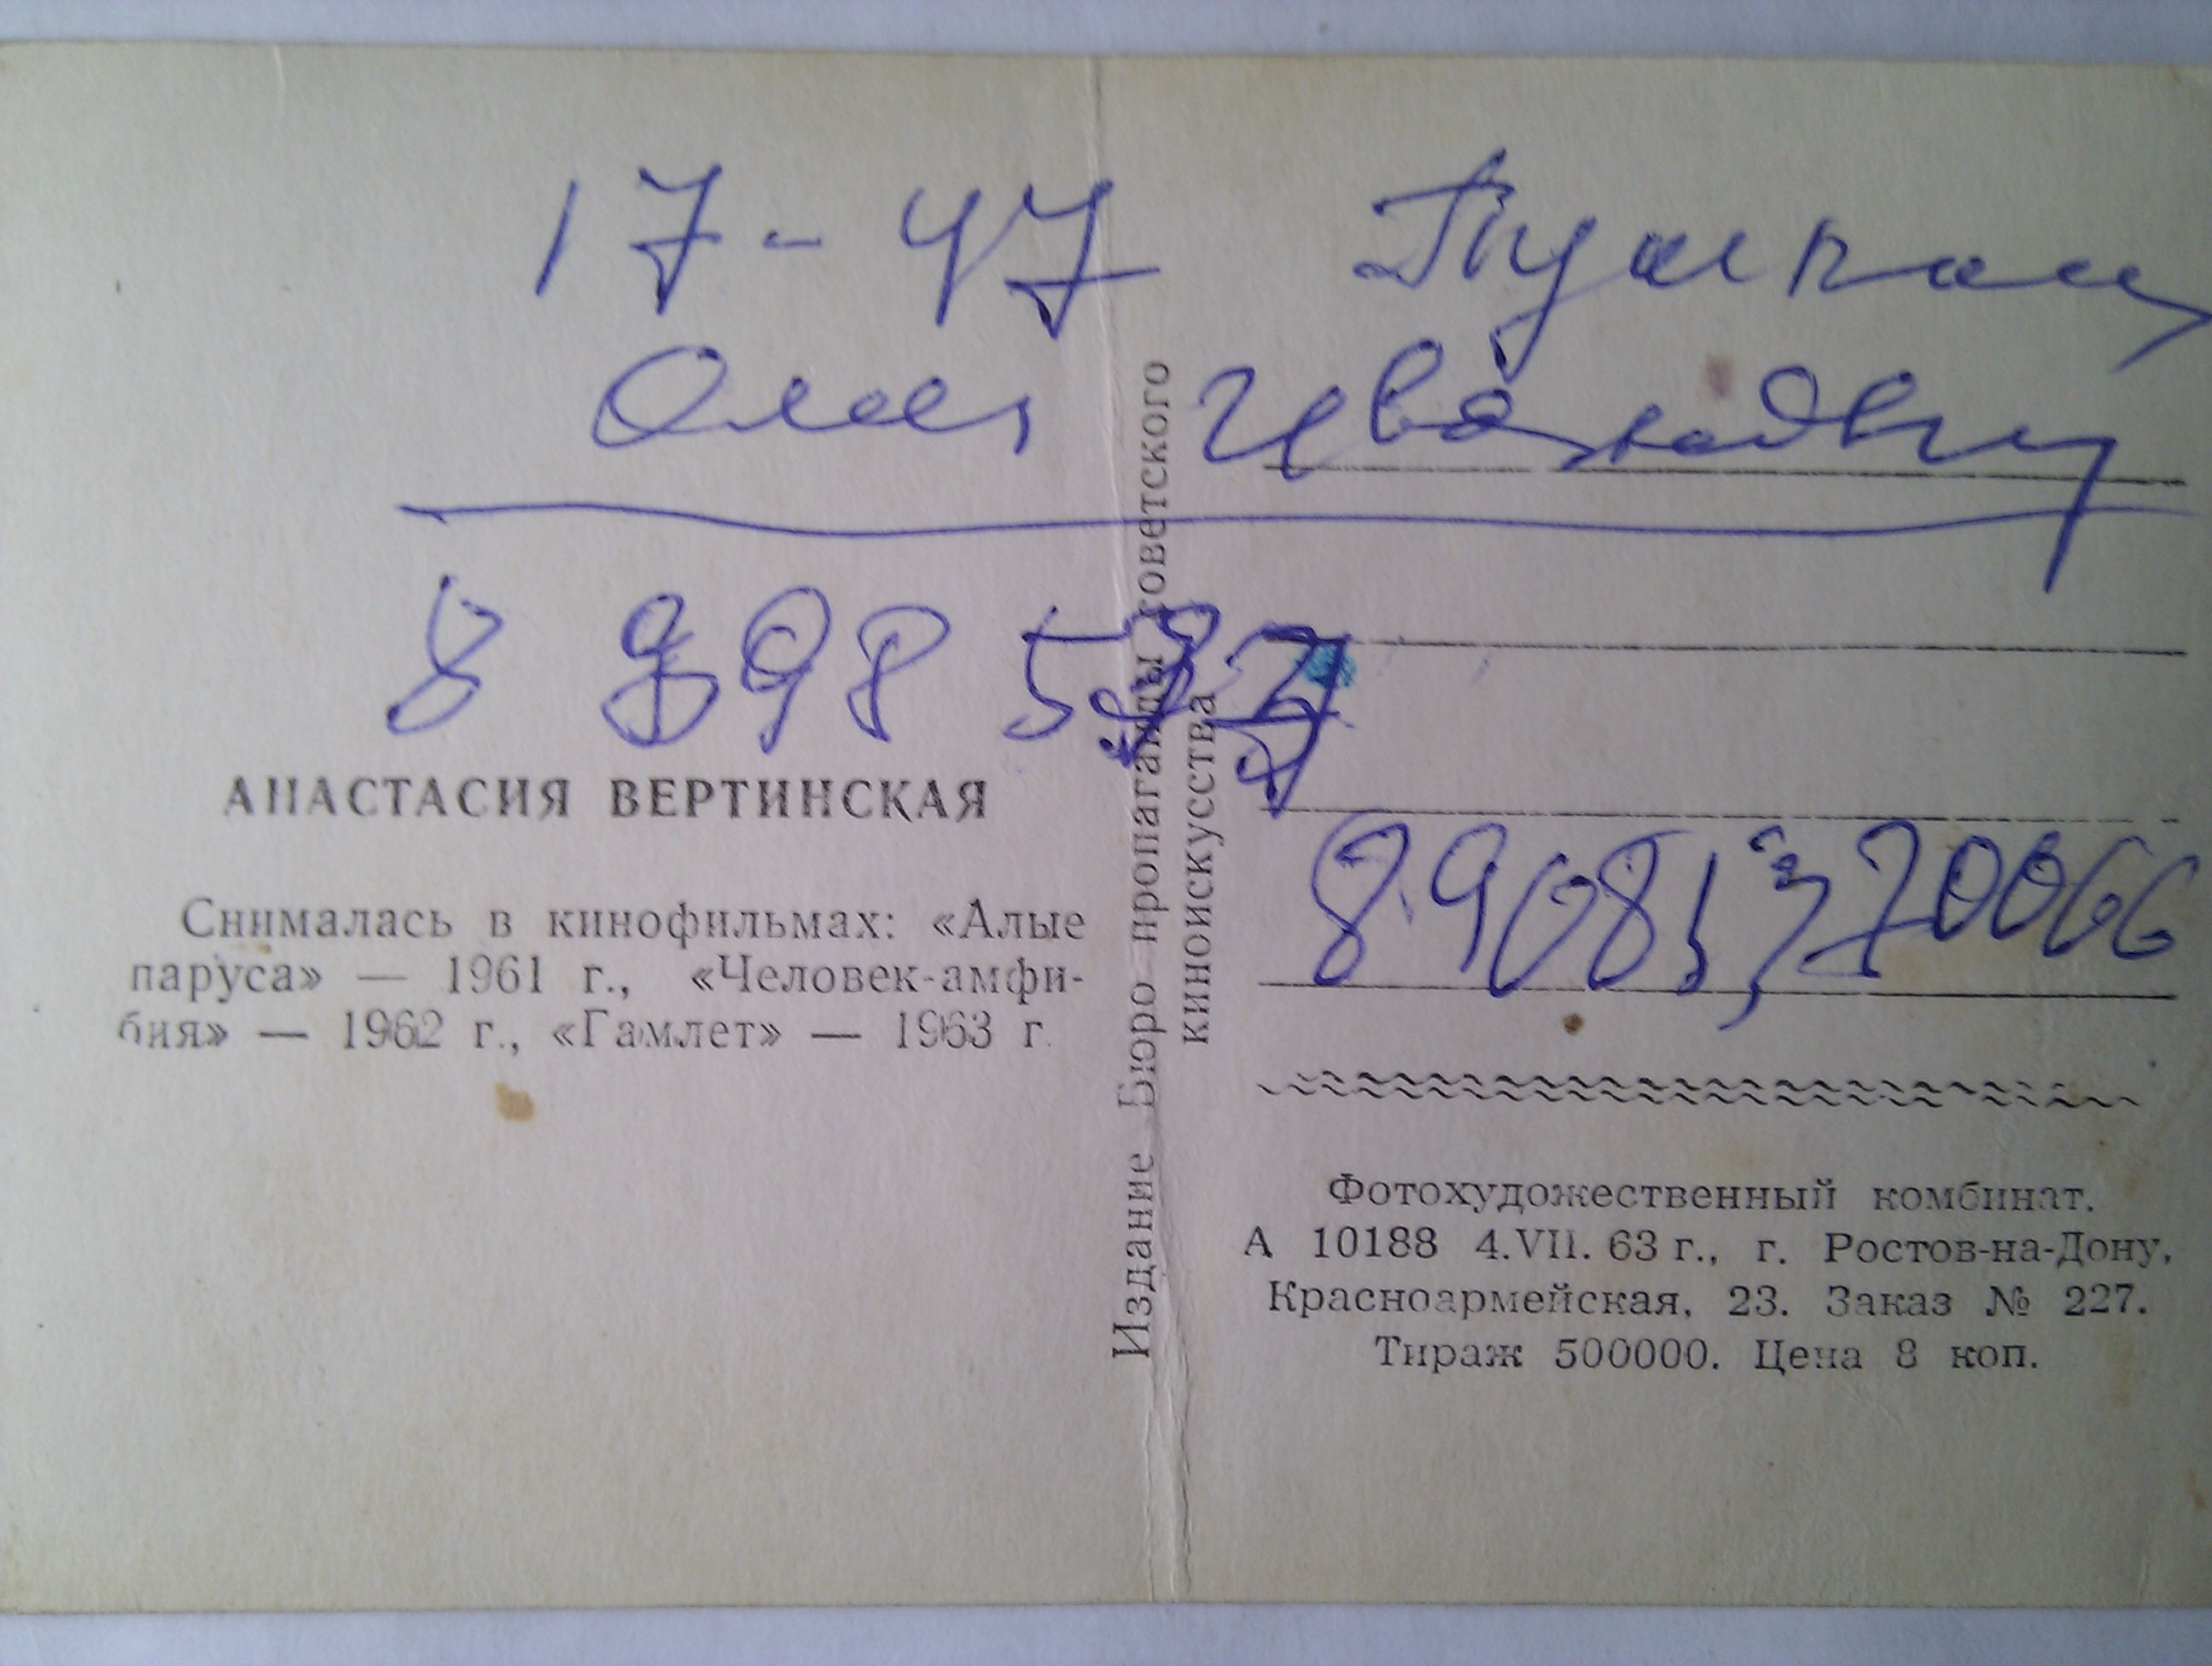 17-47
АНАСТАСИЯ ВЕРТИНСКАЯ
Снималась в кинофильмах: «Алые
паруса» — 1961 г., «Человек-амфи-
бия» — 1962 г., «Гамлет» — 1963 г.
Издание Бюро пропаганды советского
киноискусства
89081370066
Фотохудожественный комбинат.
А 10188 4.VII. 63 г., г. Ростов-на-Дону,
Красноармейская, 23. Заказ № 227.
Тираж 500000. Цена 8 коп.